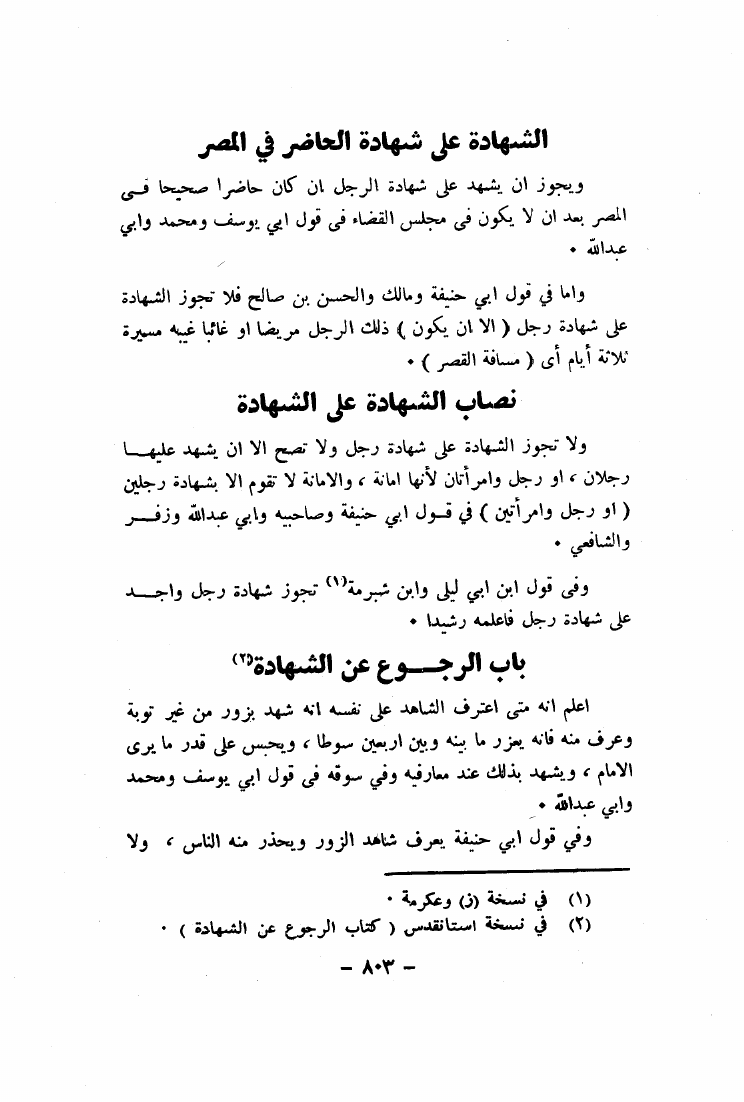 الشهادة على شهادة الحاضر في المصر
ويجوز ان يشهد على شهادة الرجل ان كان حاضرا صحيحا فى
المصر بعد ان لا يكون فى مجلس القضاء فى قول ابي يوسف ومحمد وابي
عبدالله ٠
واما في قول ابي حنيفة ومالك والحسن بن صالح فلا تجوز الشهادة
على شهادة رجل ( الا ان يكون ) ذلك الرجل مريضا او غائبا غيبه مسيرة
ثلاثة أيام أى ( مسافة القصر ) ٠
نصاب الشهادة على الشهادة
ولا تجوز الشهادة على شهادة رجل ولا تصح الا ان يشهد عليها
رجلان ، او رجل وامرأتان لأنها امانة ، والامانة لا تقوم الا بشهادة رجلين
( او رجل وامرأتين ) في قول ابي حنيفة وصاحبيه وابي عبدالله وزفر
والشافعي ٠
وفى قول ابن ابي ليلى وابن شبرمة(١) تجوز شهادة رجل واحد
على شهادة رجل فاعلمه رشيدا ٠
باب الرجوع عن الشهادة(٢)
اعلم انه متى اعترف الشاهد على نفسه انه شهد بزور من غير توبة
وعرف منه فانه يعزر ما بينه وبين اربعين سوطا ، ويحبس على قدر ما يرى
الامام ، ويشهد بذلك عند معارفيه وفي سوقه فى قول ابي يوسف ومحمد
وابي عبدالله ٠
وفي قول ابي حنيفة يعرف شاهد الزور ويحذر منه الناس ، ولا
(١) في نسخة (ز) وعكرمة ٠
(٢) في نسخة استانقدس ( كتاب الرجوع عن الشهادة ) ٠
– ٨٠٣ –